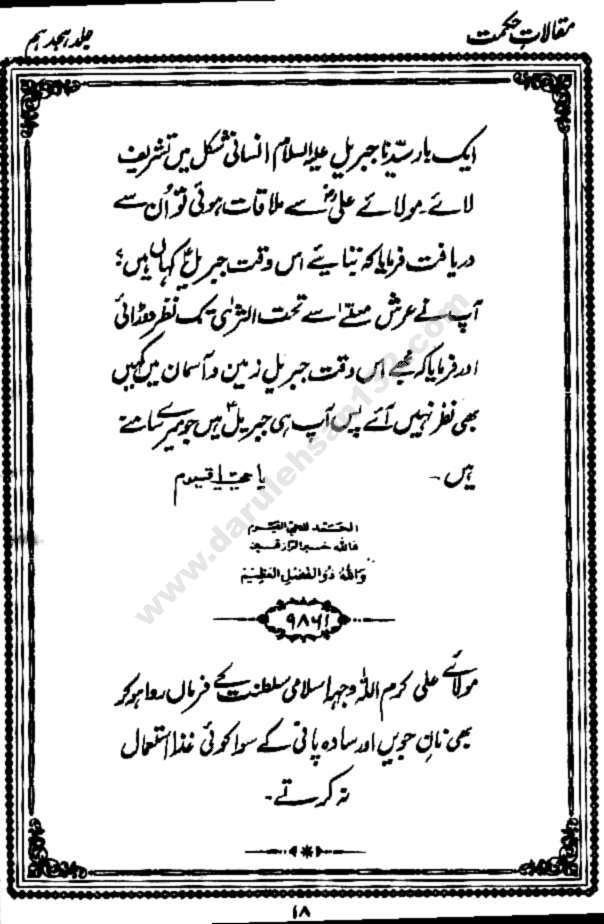 مقالاتِ حکمت
جلد ہیجدہم
ایک بار سیّدنا جبریل علیہ السلام انسانی شکل میں تشریف
لائے۔ مولائے علیؓ سے ملاقات ہوئی تو اُن سے
دریافت فرمایا کہ بتایئے اس وقت جبریلؑ کہاں ہیں؟
آپ نے عرش معلّے سے تحت الثریٰ تک نظر دوڑائی
اور فرمایا کہ مجھے اس وقت جبریل زمین و آسمان میں کہیں
بھی نظر نہیں آئے پس آپ ہی جبریلؑ ہیں جو میرے سامنے
ہیں۔ یا حی یا قیوم
الحمد للحی القیوم
فالله خیر الرازقین
وَاللهُ ذُو الفَضْلِ العَظِیْم
۹۸۶۱
مولائے علی کرم اللہ وجہہ اسلامی سلطنت کے فرماں روا ہو کر
بھی نانِ جویں اور سادہ پانی کے سوا کوئی غذا استعمال
نہ کرتے۔
۱۸
www.darulehsan132.com